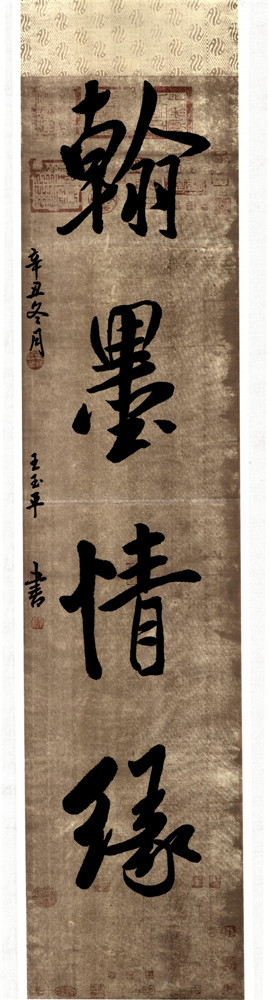 翰墨情缘
辛丑冬月
王玉平
书